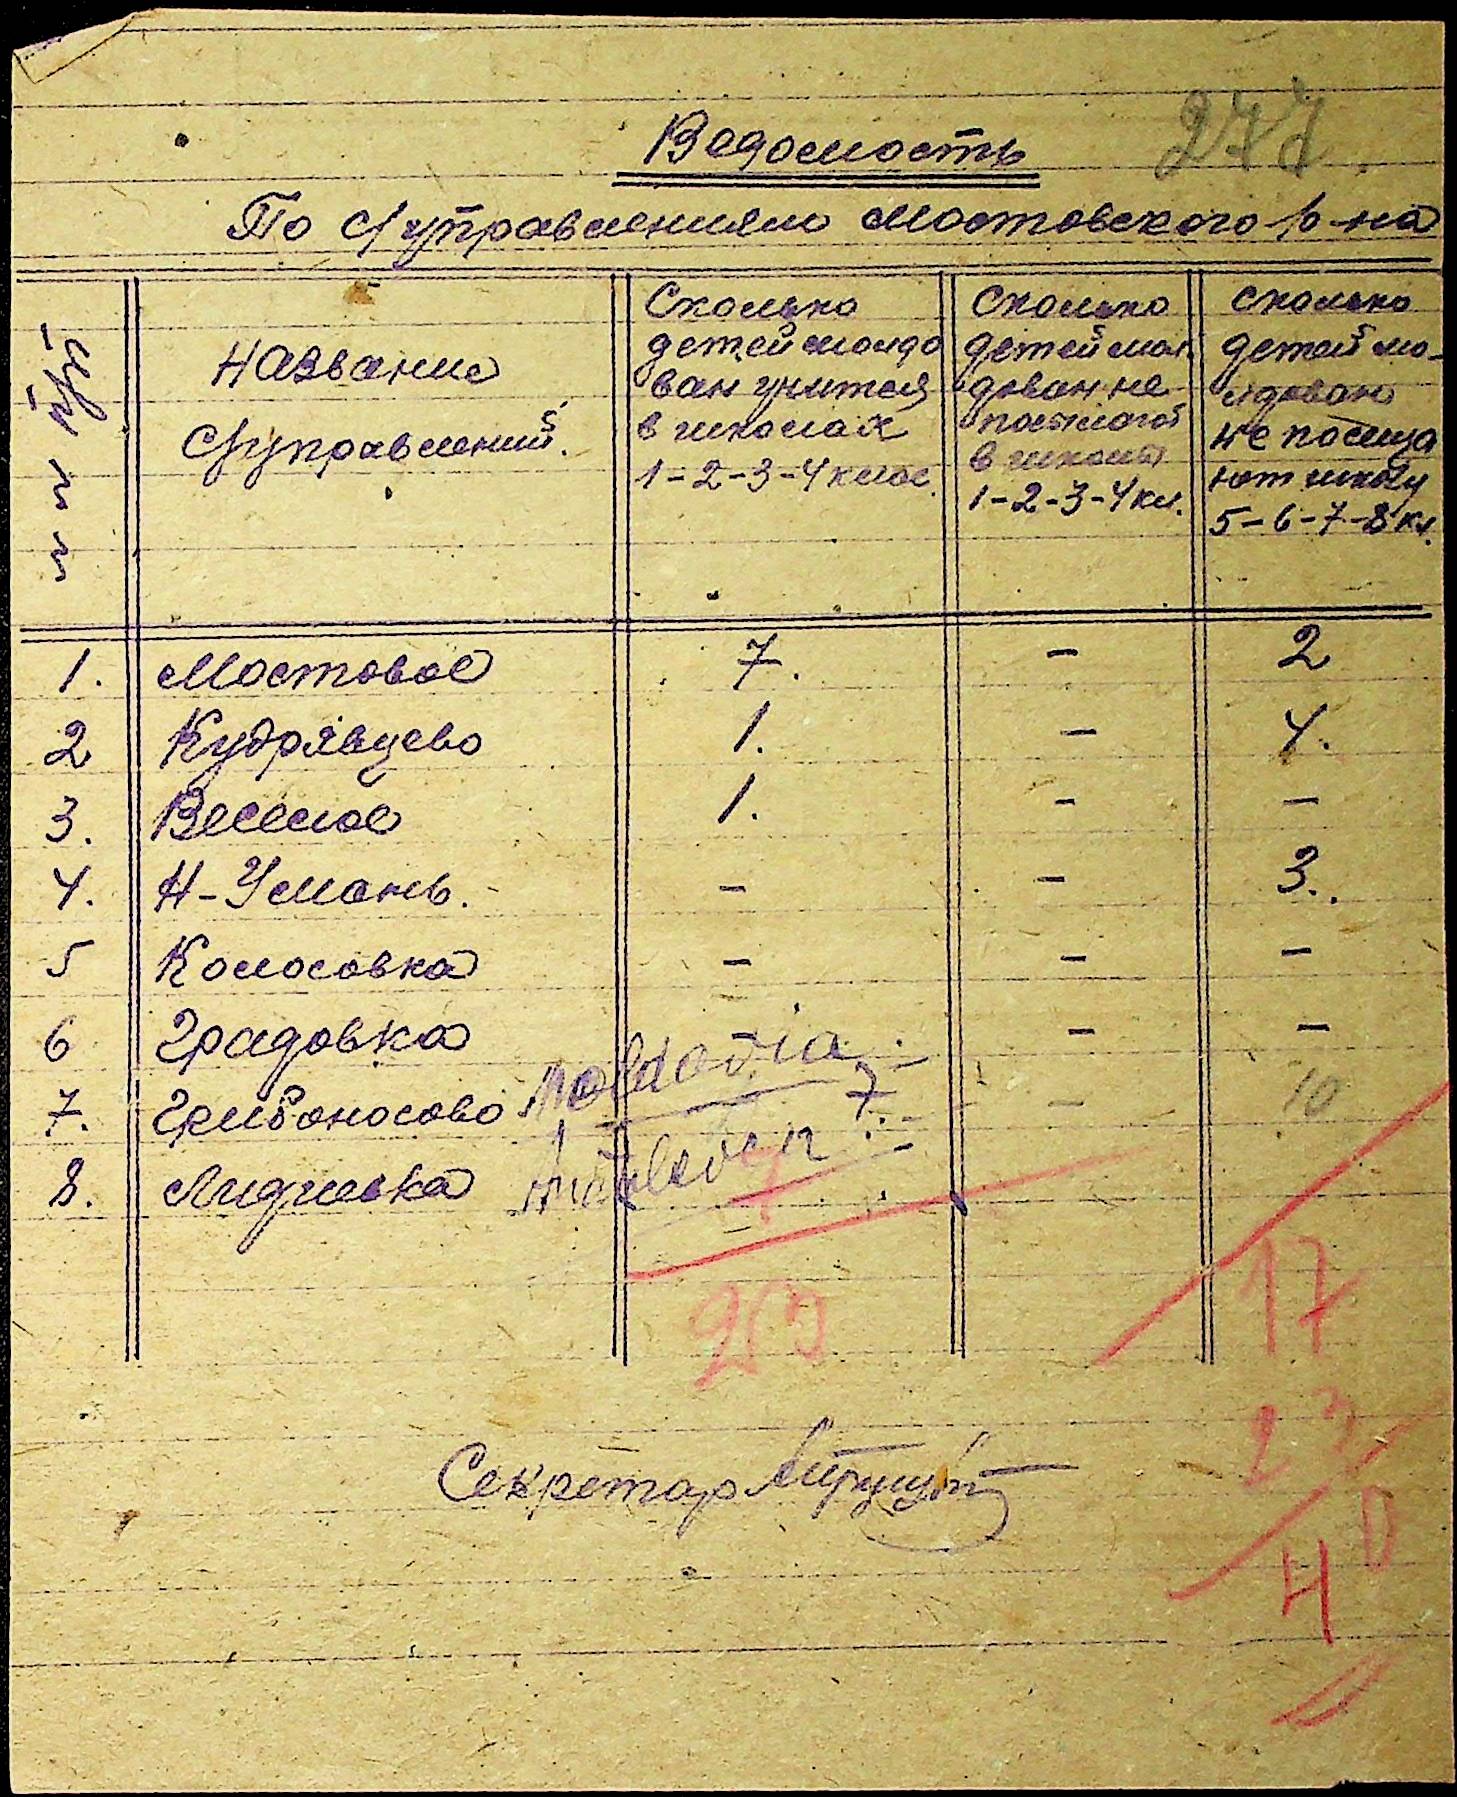 277
Ведомость
По с/управлениям Мостовского р-на
Название
с/управлений.
Сколько
детей молдо
ван учится
в школах
1-2-3-4 клас.
Сколько
детей мол.
дован не
в школы
1-2-3-4 кл.
Сколько
детей мо-
лдован
не посеща
ют школу
5-6-7-8 кл.
1. Мостовое 7. - 2
2 Кудрявцево 1. - 4.
3. Веселое 1. - -
4. Н-Умань. - - 3.
5 Колосовка - - -
6 Градовка - - -
Moldovia
7. Грибоносово 7 - 10
8. Лидиевка
20
17
23
40
Секретар